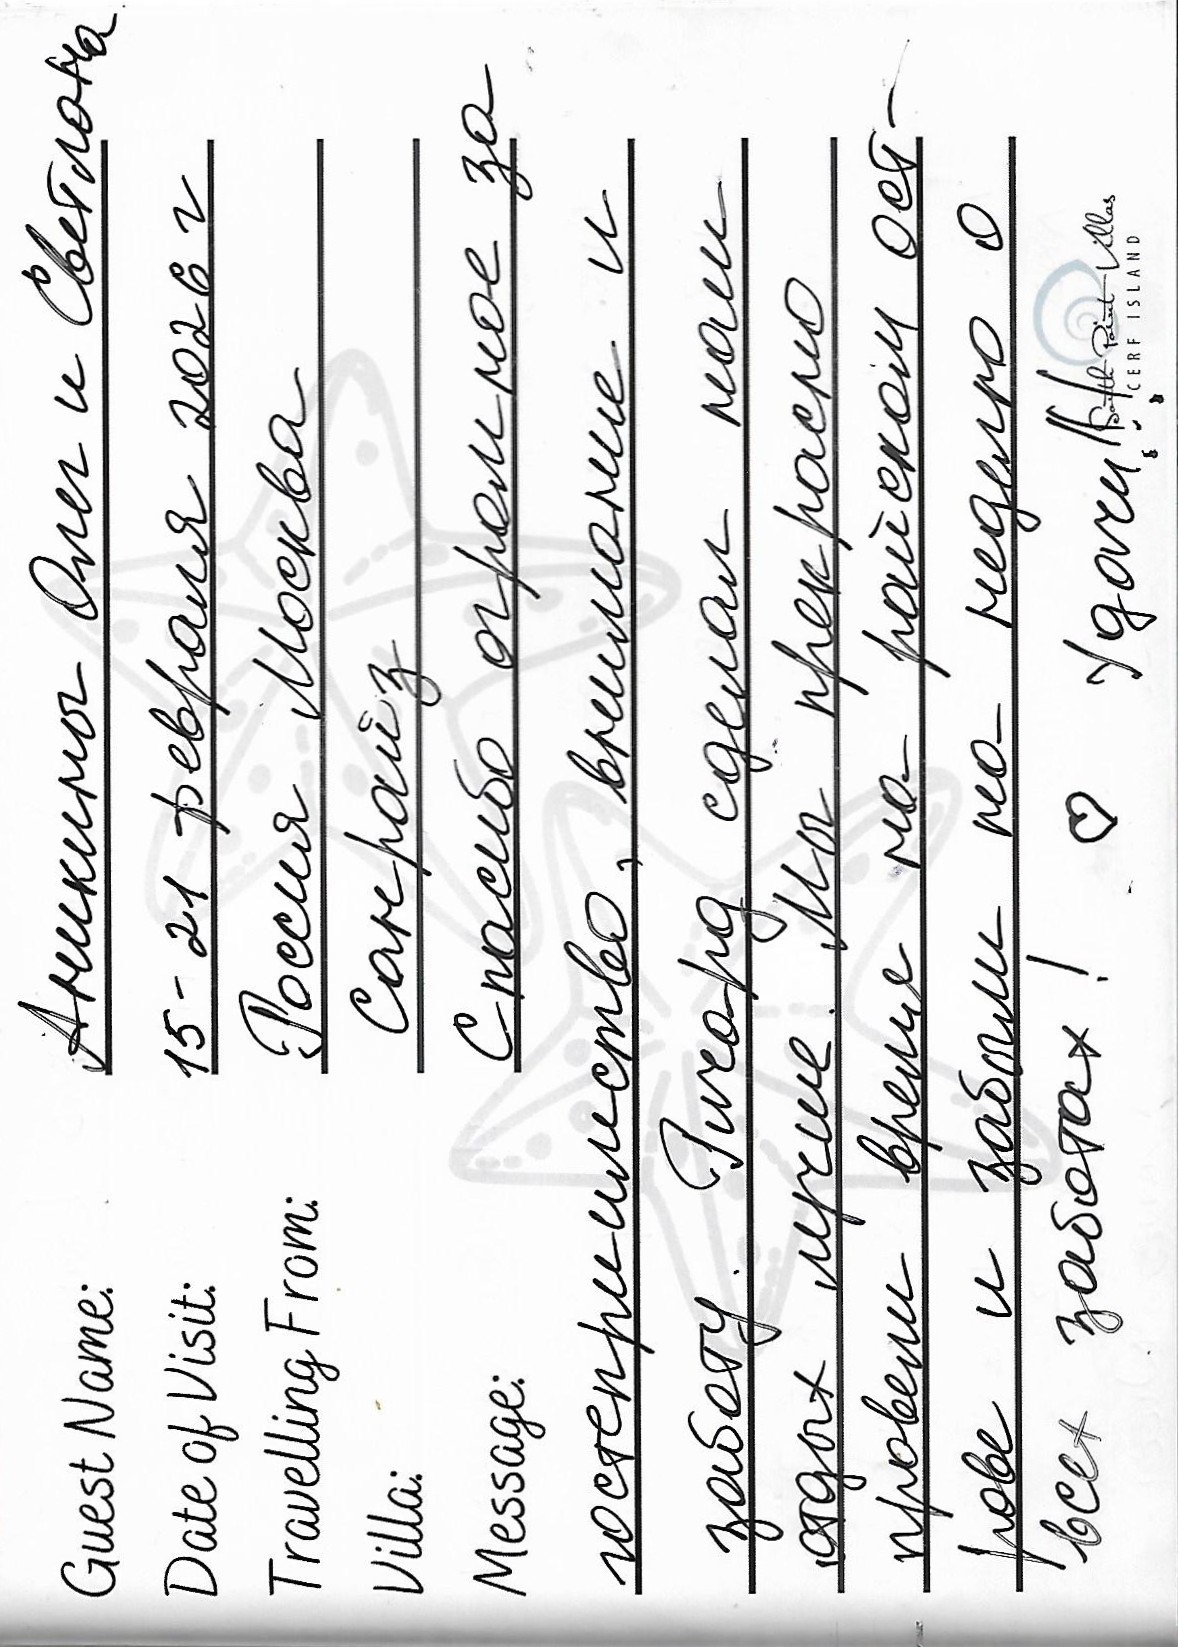 Guest Name: Аникины Олег и Светлана
Date of Visit: 15-21 февраля 2026 г
Travelling From: Россия Москва
Villa: Санрайз
Message: Спасибо огромное за
гостеприимство, внимание и
заботу. Ричард сделал наш
отдых лучше. Мы прекрасно
провели время на райском ост-
рове и забыли на неделю о
всех заботах! ♡ Удачи!!!
South Point Villas
CERF ISLAND